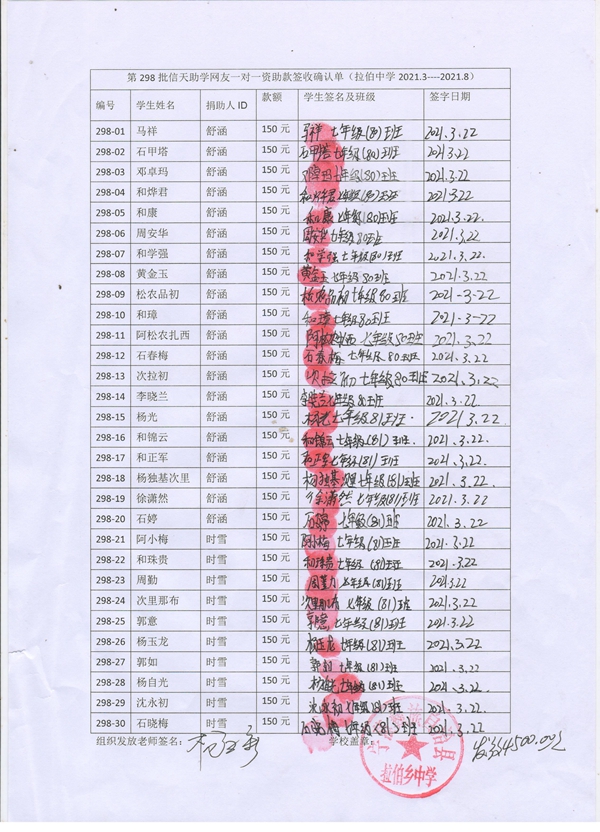 第 298 批信天助学网友一对一资助款签收确认单（拉伯中学 2021.3----2021.8）
编号 学生姓名 捐助人 ID 款额 学生签名及班级 签字日期
298-01 马祥 舒涵 150 元 马祥 七年级(80)班 2021.3.22
298-02 石甲塔 舒涵 150 元 石甲塔 七年级(80)班 2021.3.22
298-03 邓卓玛 舒涵 150 元 邓卓玛 七年级(80)班 2021.3.22
298-04 和烨君 舒涵 150 元 和烨君 七年级(80)班 2021.3.22
298-05 和康 舒涵 150 元 和康 七年级(80)班 2021.3.22
298-06 周安华 舒涵 150 元 周安华 七年级80班 2021.3.22
298-07 和学强 舒涵 150 元 和学强 七年级(80)班 2021.3.22.
298-08 黄金玉 舒涵 150 元 黄金玉 七年级80班 2021.3.22
298-09 松农品初 舒涵 150 元 松农品初 七年级80班 2021-3-22
298-10 和璋 舒涵 150 元 和璋 七年级80班 2021.3-22
298-11 阿松农扎西 舒涵 150 元 七年级80班 2021.3.22
298-12 石春梅 舒涵 150 元 石春梅 七年级80班 2021.3.22
298-13 次拉初 舒涵 150 元 次拉初 七年级80班 2021.3.22
298-14 李晓兰 舒涵 150 元 李晓兰 七年级80班 2021.3.22
298-15 杨光 舒涵 150 元 杨光 七年级81班 2021.3.22.
298-16 和锦云 舒涵 150 元 和锦云 七年级(81)班 2021.3.22.
298-17 和正军 舒涵 150 元 和正军 七年级(81)班 2021.3.22.
298-18 杨独基次里 舒涵 150 元 七年级(81)班 2021.3.22.
298-19 徐潇然 舒涵 150 元 徐潇然 七年级(81)班 2021.3.22
298-20 石婷 舒涵 150 元 石婷 七年级(81)班 2021.3.22
298-21 阿小梅 时雪 150 元 阿小梅 七年级(81)班 2021.3.22
298-22 和珠贵 时雪 150 元 和珠贵 七年级(81)班 2021.3.22
298-23 周勤 时雪 150 元 周勤 七年级(81)班 2021.3.22
298-24 次里那布 时雪 150 元 次里那布 七年级(81)班 2021.3.22
298-25 郭意 时雪 150 元 郭意 七年级(81)班 2021.3.22
298-26 杨玉龙 时雪 150 元 杨玉龙 七年级(81)班 2021.3.22
298-27 郭如 时雪 150 元 郭如 七年级(81)班 2021.3.22
298-28 杨自光 时雪 150 元 杨自光 七年级(81)班 2021.3.22.
298-29 沈永初 时雪 150 元 沈永初 七年级(81)班 2021.3.22
298-30 石晓梅 时雪 150 元 石晓梅 七年级(81)班 2021.3.22
组织发放老师签名： 学校盖章： 发款4500.00元
拉伯乡中学